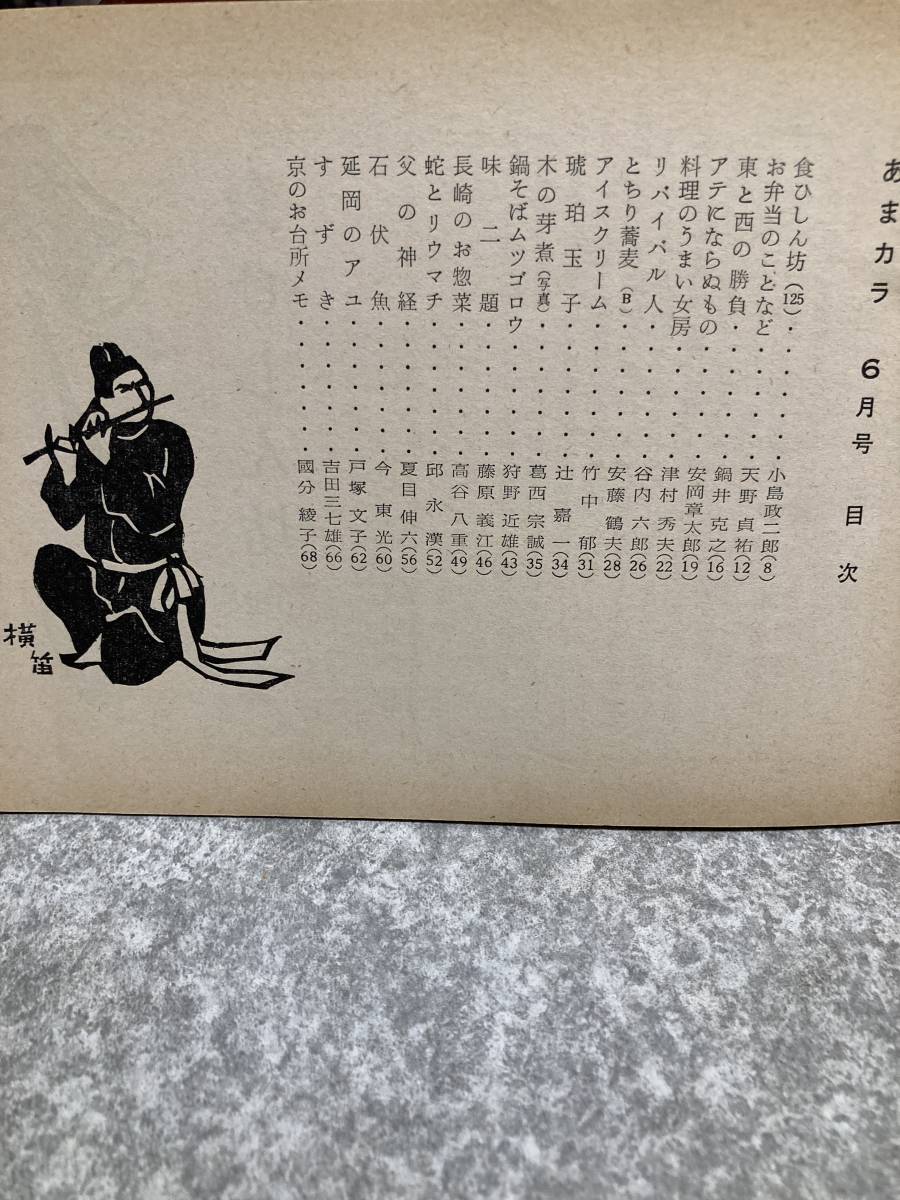 あまカラ 6月号 目次
食ひしん坊(125)・・・・・・小島政二郎(8)
お弁当のことなど・・・・・天野貞祐(12)
東と西の勝負・・・・・・鍋井克之(16)
アテにならぬもの・・・・・安岡章太郎(19)
料理のうまい女房・・・・・津村秀夫(22)
リバイバル人・・・・・・谷内六郎(26)
とちり蕎麦(B)・・・・・・安藤鶴夫(28)
アイスクリーム・・・・・・竹中郁(31)
琥珀玉子・・・・・・辻嘉一(34)
木の芽煮(写真)・・・・・・葛西宗誠(35)
鍋そばムツゴロウ・・・・・狩野近雄(43)
味二題・・・・・・藤原義江(46)
長崎のお惣菜・・・・・・高谷八重(49)
蛇とリウマチ・・・・・・邱永漢(52)
父の神経・・・・・・夏目伸六(56)
石伏魚・・・・・・今東光(60)
延岡のアユ・・・・・・戸塚文子(62)
すずき・・・・・・吉田三七雄(66)
京のお台所メモ・・・・・・國分綾子(68)
横笛